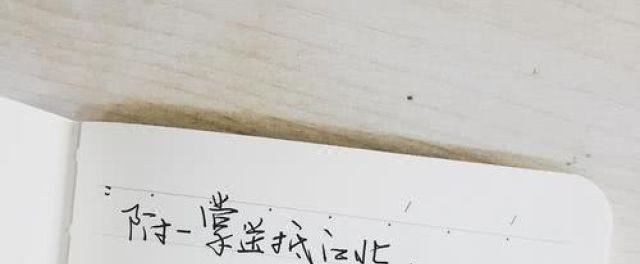 附一掌送抵江北